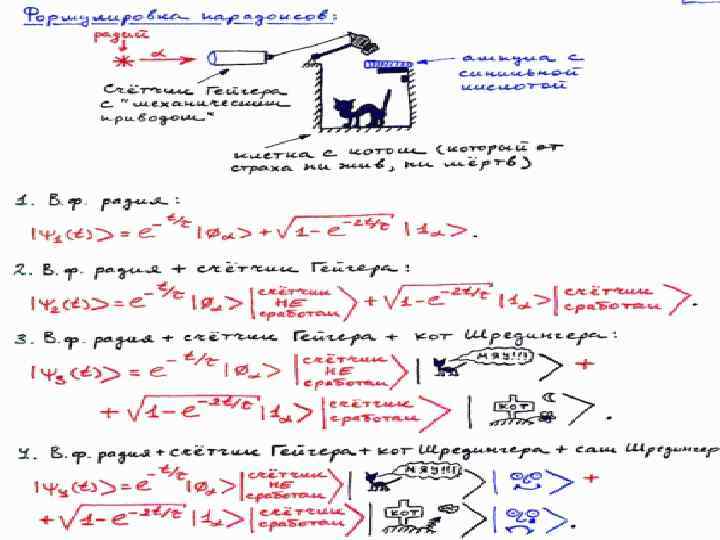 Формулировка парадоксов:
радий
α
Счётчик Гейгера
с "механическим
приводом"
ампула с
синильной
кислотой
клетка с котом (который от
страха ни жив, ни мёртв)
1. В.ф. радия:
|Ψ₁(t)> = e^(-t/τ) |0α> + √(1-e^(-2t/τ)) |1α>.
2. В.ф. радия + счётчик Гейгера:
|Ψ₂(t)> = e^(-t/τ) |0α> |счётчик НЕ сработал> + √(1-e^(-2t/τ)) |1α> |счётчик сработал>.
3. В.ф. радия + счётчик Гейгера + кот Шредингера:
|Ψ₃(t)> = e^(-t/τ) |0α> |счётчик НЕ сработал> | МЯУ!!! > +
+ √(1-e^(-2t/τ)) |1α> |счётчик сработал> | КОТ >.
4. В.ф. радия + счётчик Гейгера + кот Шредингера + сам Шредингер
|Ψ₄(t)> = e^(-t/τ) |0α> |счётчик НЕ сработал> | МЯУ!!! > | > +
+ √(1-e^(-2t/τ)) |1α> |счётчик сработал> | КОТ > | >.